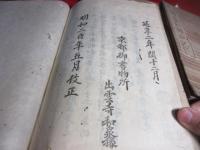 延享二年閏十二月
京都御書物所
出雲寺和泉掾
明和二酉年五月校正